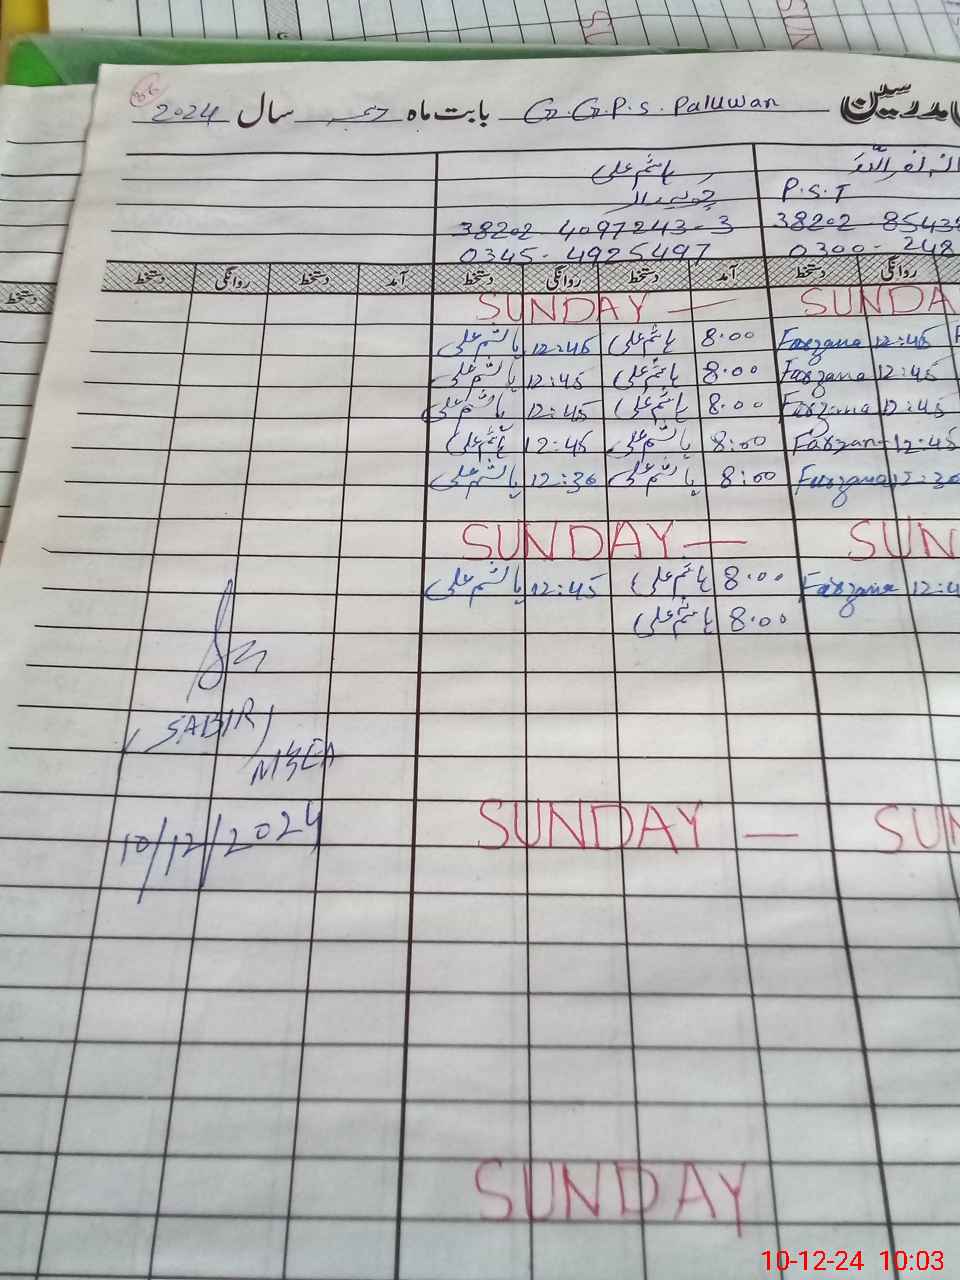 مدرسین G.G.P.S. Paluwan بابت ماہ دسمبر سال 2024
ہاشم علی
چوکیدار P.S.T
38202 4097243-3 38202 8543
0345-4925497 0300-248
دستخط روانگی دستخط آمد دستخط روانگی دستخط آمد دستخط روانگی
دستخط
SUNDAY — SUNDA
ہاشم علی 12:45 ہاشم علی 8:00 Farzana 12:45
ہاشم علی 12:45 ہاشم علی 8:00 Farzana 12:45
ہاشم علی 12:45 ہاشم علی 8:00 Farzana 12:45
ہاشم علی 12:45 ہاشم علی 8:00 Farzana 12:45
ہاشم علی 12:30 ہاشم علی 8:00 Farzana 12:30
SUNDAY — SUN
ہاشم علی 12:45 ہاشم علی 8:00 Farzana 12:4
ہاشم علی 8:00
SABIR
MEA
10/12/2024
SUNDAY — SUN
SUNDAY
10-12-24 10:03